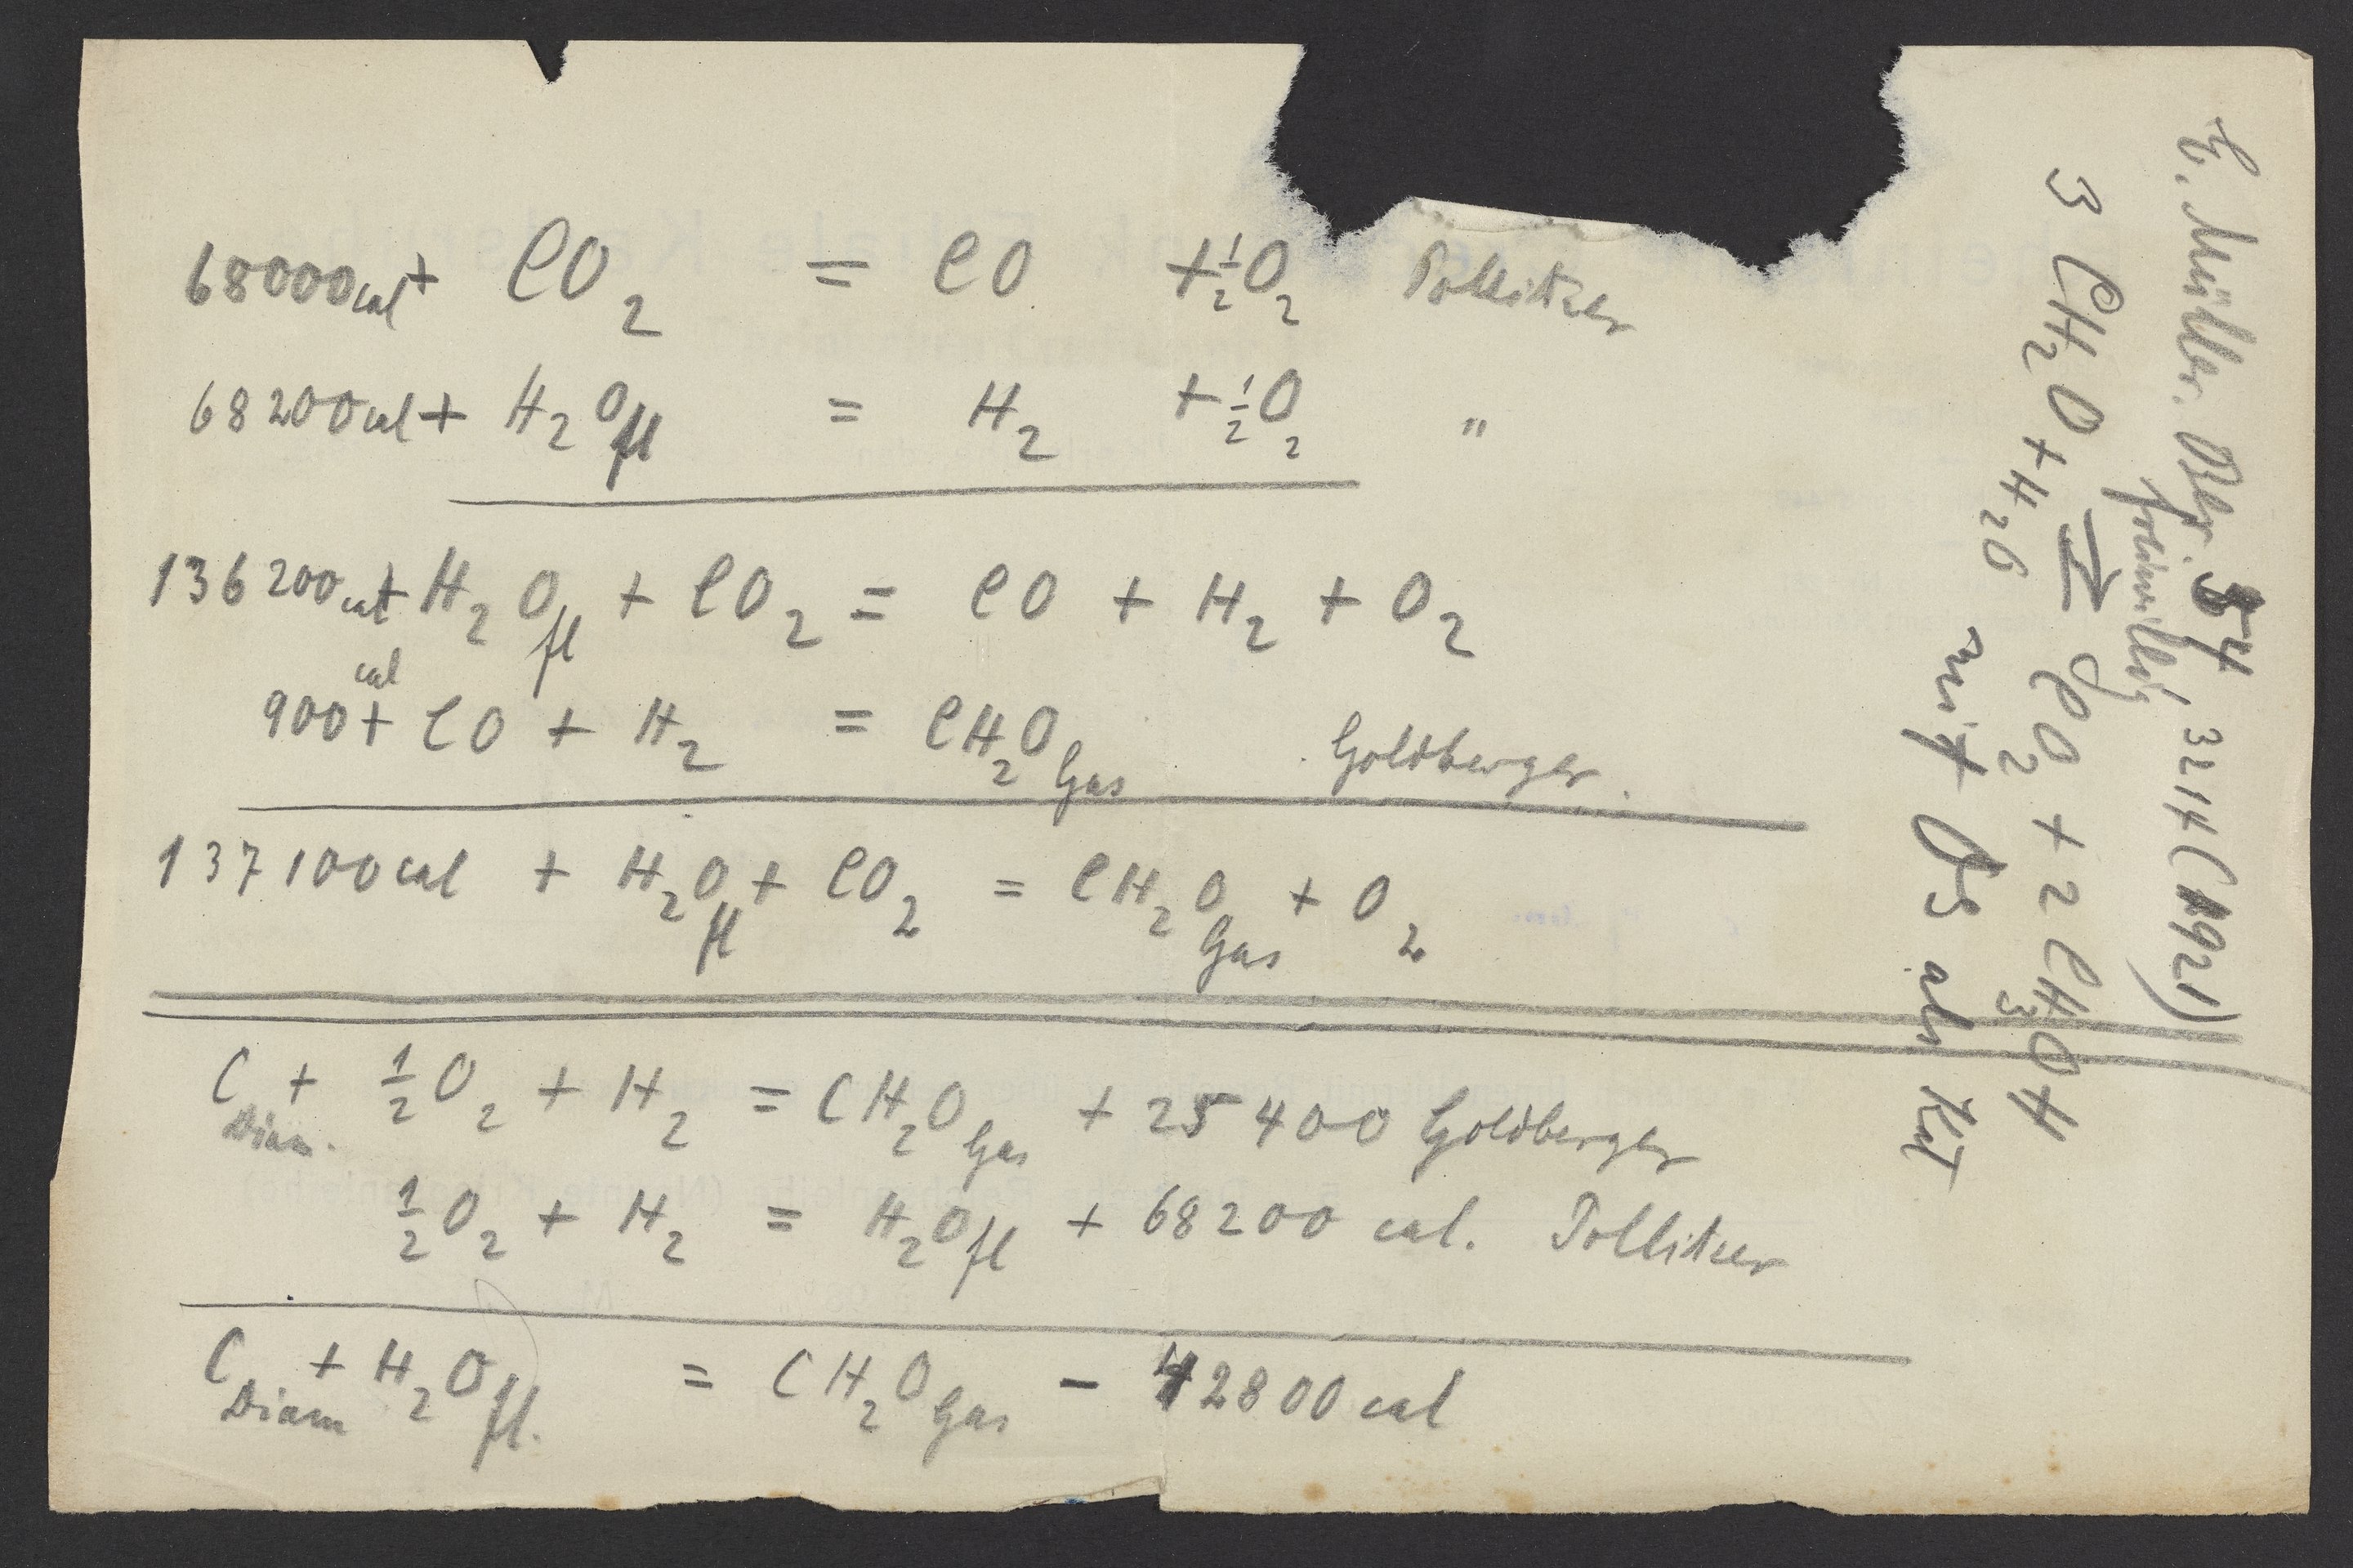 68000cal + CO2 = CO + 1/2 O2 Pollitzer
68200cal + H2Ofl = H2 + 1/2 O2 "
136200cal + H2Ofl + CO2 = CO + H2 + O2
900cal + CO + H2 = CH2OGas Goldberger.
137100cal + H2Ofl + CO2 = CH2OGas + O2
CDiam. + 1/2 O2 + H2 = CH2OGas + 25400 Goldberger
1/2 O2 + H2 = H2Ofl + 68200 cal. Pollitzer
CDiam + H2Ofl. = CH2OGas - 42800 cal
E. Müller. Ber. 54, 3214 (1921)
freiwillig
3 CH2O + H2O ⇌ CO2 + 2 CH3OH
mit Os als Kat